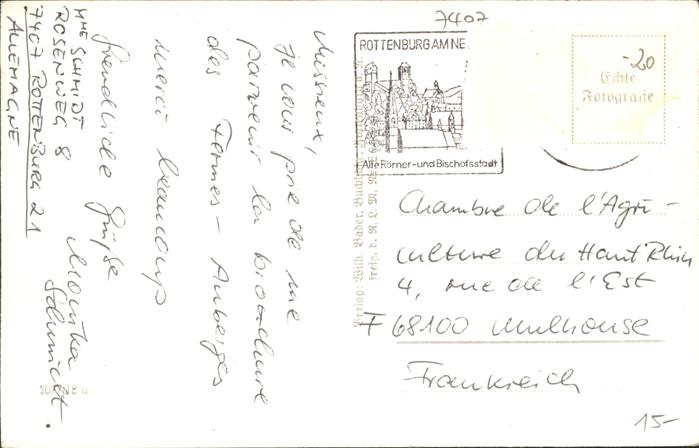 7407
ROTTENBURG AM NE
Alte Römer- und Bischofsstadt
-20
Echte
Fotografie
Messieurs,
Je vous prie de me
parvenir la brochure
des Fermes - Auberges
merci beaucoup
freundliche Grüße
Monika
Schmidt
Mme SCHMIDT
ROSENWEG 8
7407 ROTTENBURG 21
ALLEMAGNE
Chambre de l'Agri-
culture du Haut Rhin
4, rue de l'Est
F 68100 Mulhouse
Frankreich
15-
Verlag: Wilh. Bader, Buchh
freig. d. R. L. M.